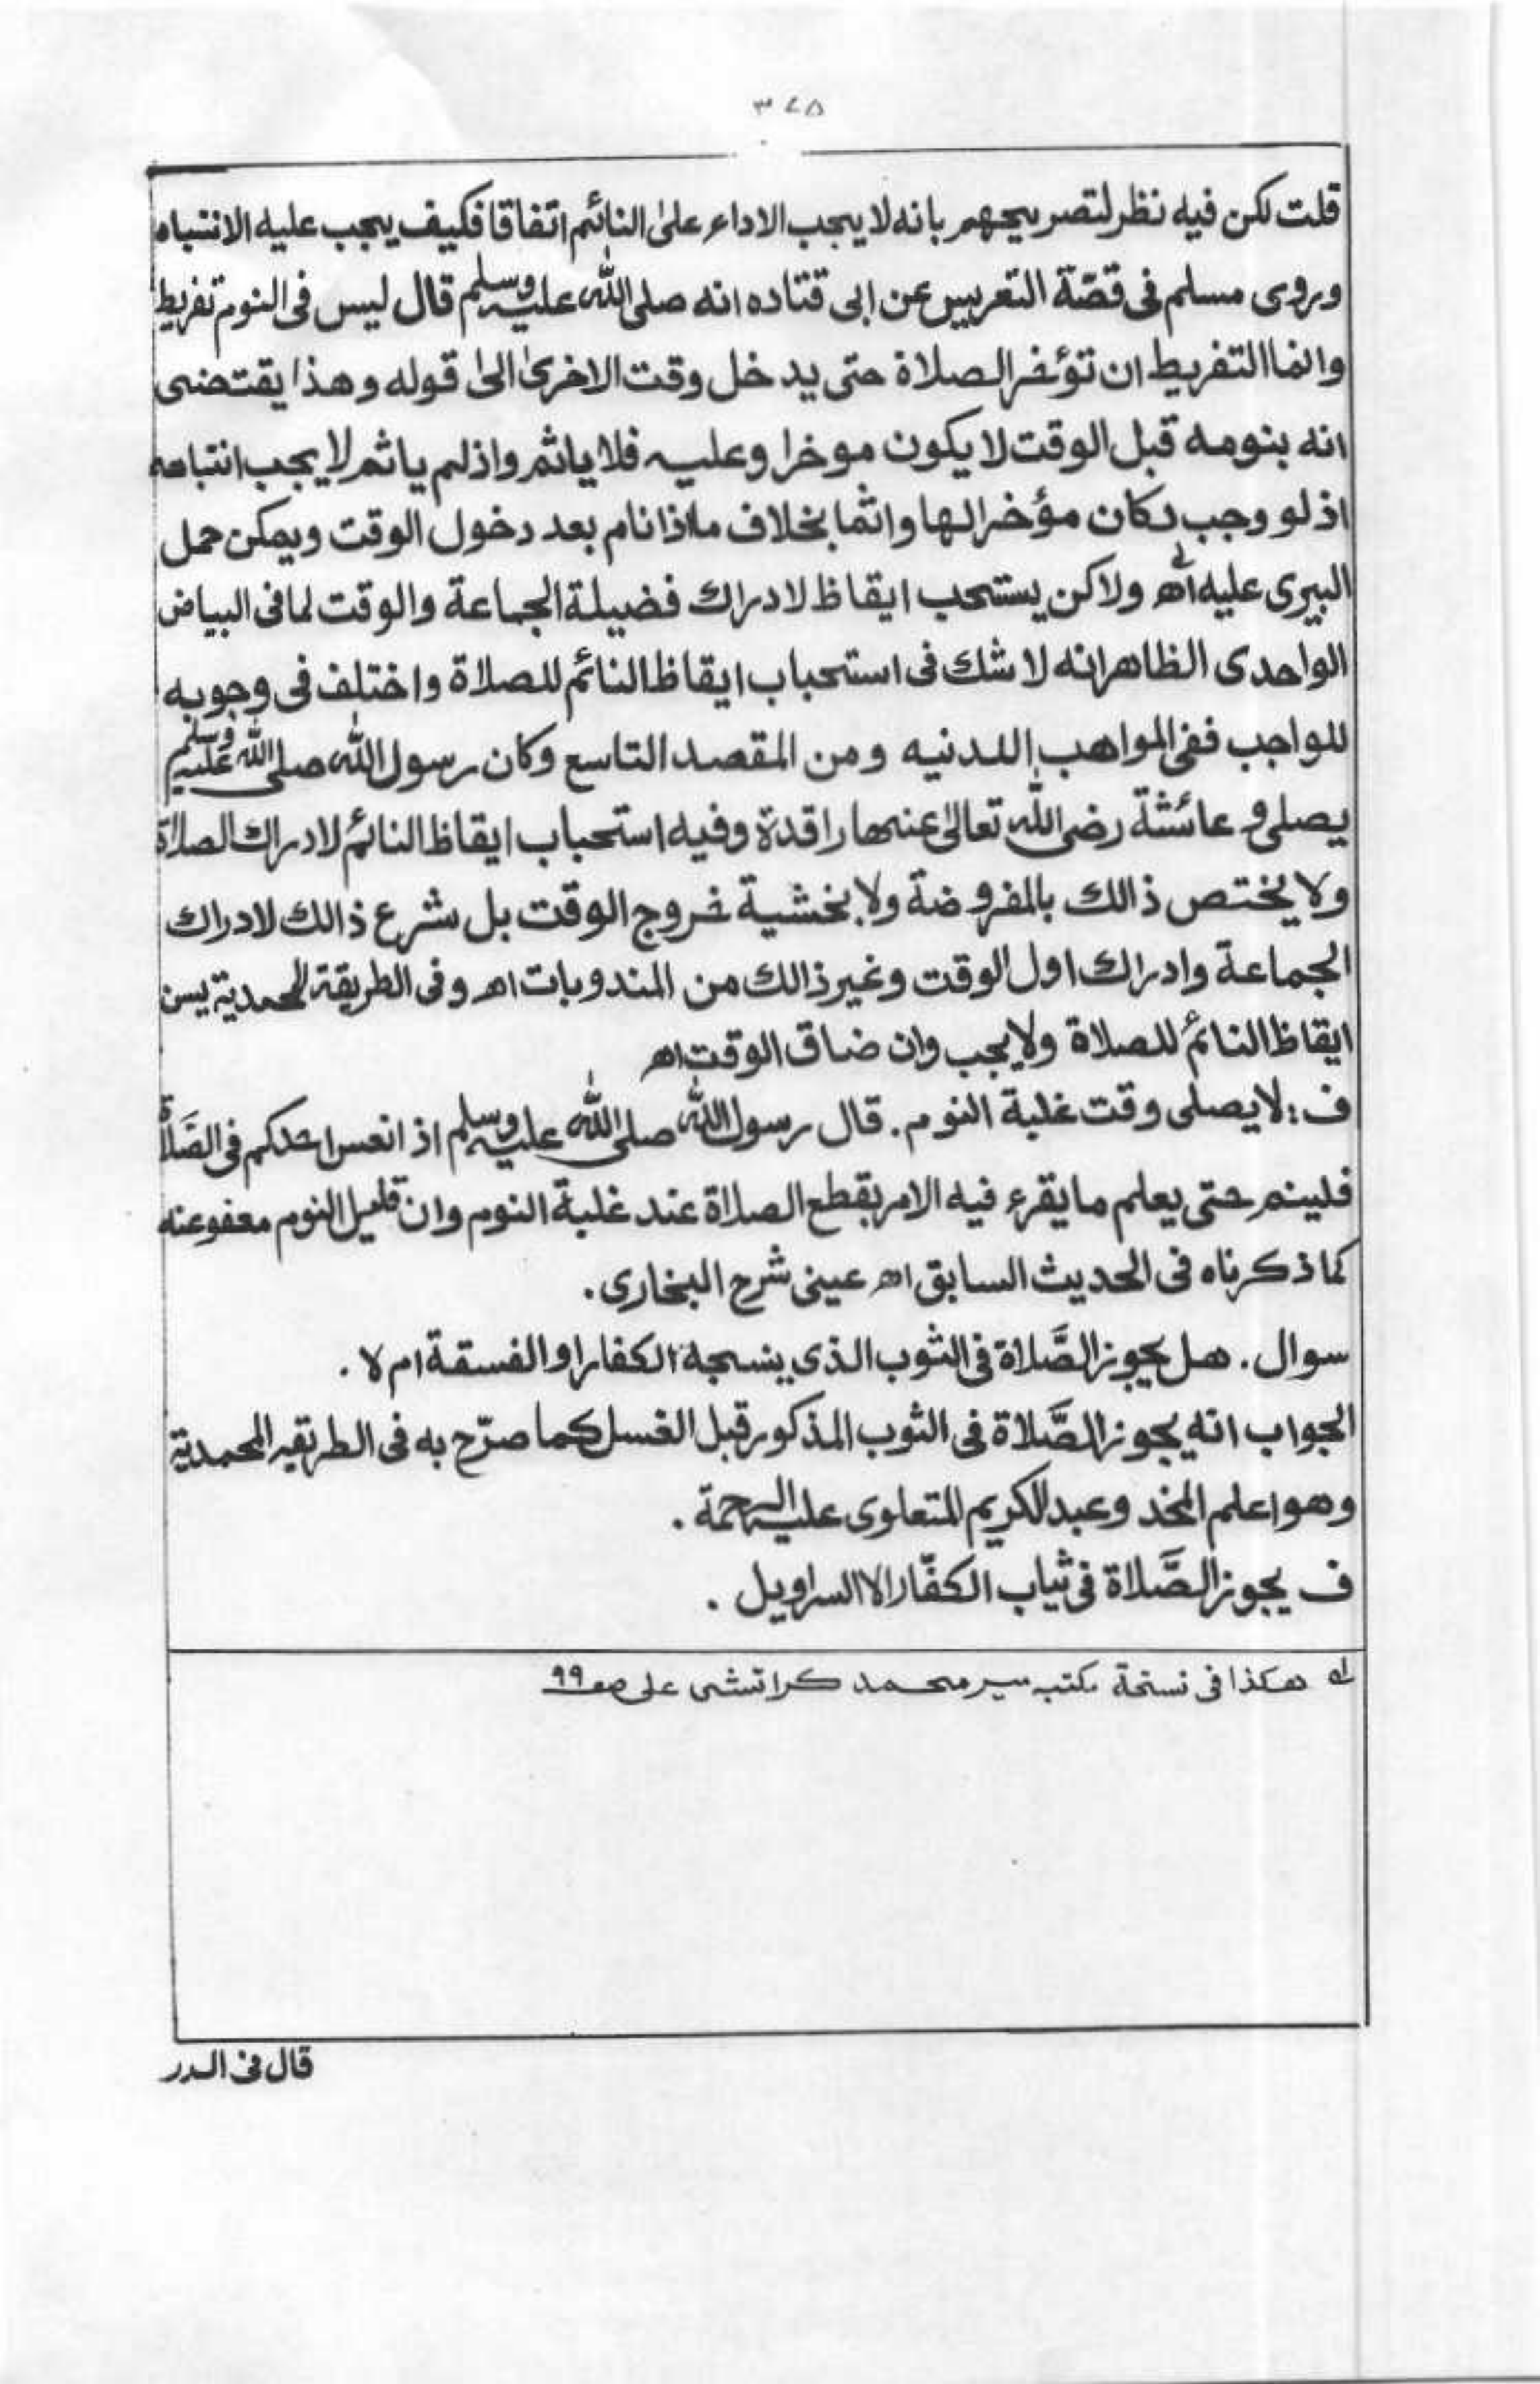 ٣٧٥
قلت لكن فيه نظر لتصريحهم بانه لا يجب الاداء على النائم اتفاقا فكيف يجب عليه الانتباه
وروى مسلم فى قصّة التعريس عن ابى قتاده انه صلى الله عليه وسلم قال ليس فى النوم تفريط
وانما التفريط ان تؤخر الصلاة حتى يدخل وقت الاخرى الى قوله وهذا يقتضى
انه بنومه قبل الوقت لا يكون موخرا وعليه فلا ياثم واذ لم ياثم لا يجب انتباهه
اذ لو وجب لكان مؤخرا لها واثما بخلاف ما اذا نام بعد دخول الوقت ويمكن حمل
البيرى عليه اھ ولاكن يستحب ايقاظ لادراك فضيلة الجماعة والوقت لما فى البياض
الواحدى الظاهر انه لا شك فى استحباب ايقاظ النائم للصلاة واختلف فى وجوبه
للواجب ففى المواهب اللدنيه ومن المقصد التاسع وكان رسول الله صلى الله عليه وسلم
يصلى و عائشة رضى الله تعالى عنها راقدة وفيه استحباب ايقاظ النائم لادراك الصلاة
ولا يختص ذالك بالمفروضة ولا بخشية خروج الوقت بل شرع ذالك لادراك
الجماعة وادراك اول الوقت وغير ذالك من المندوبات اھ وفى الطريقة المحمدية يسن
ايقاظ النائم للصلاة ولا يجب وان ضاق الوقت اھ
ف: لا يصلى وقت غلبة النوم. قال رسول الله صلى الله عليه وسلم اذ انعس احدكم فى الصَّلاة
فلينم حتى يعلم ما يقرء فيه الامر بقطع الصلاة عند غلبة النوم وان قليل النوم معفو عنه
كما ذكرناه فى الحديث السابق اھ عينى شرح البخارى.
سوال. هل يجوز الصَّلاة فى الثوب الذى ينسجه الكفار او الفسقة ام لا.
الجواب انه يجوز الصَّلاة فى الثوب المذكور قبل الغسل كما صرّح به فى الطريقه المحمدية
وهو اعلم المخد وعبد الكريم المتعلوى عليه الرحمة.
ف يجوز الصَّلاة فى ثياب الكفّار الا السراويل.
له هكذا فى نسخة مكتبه سير محمد كراتشى على صـ ٩٩
قال فى الدر